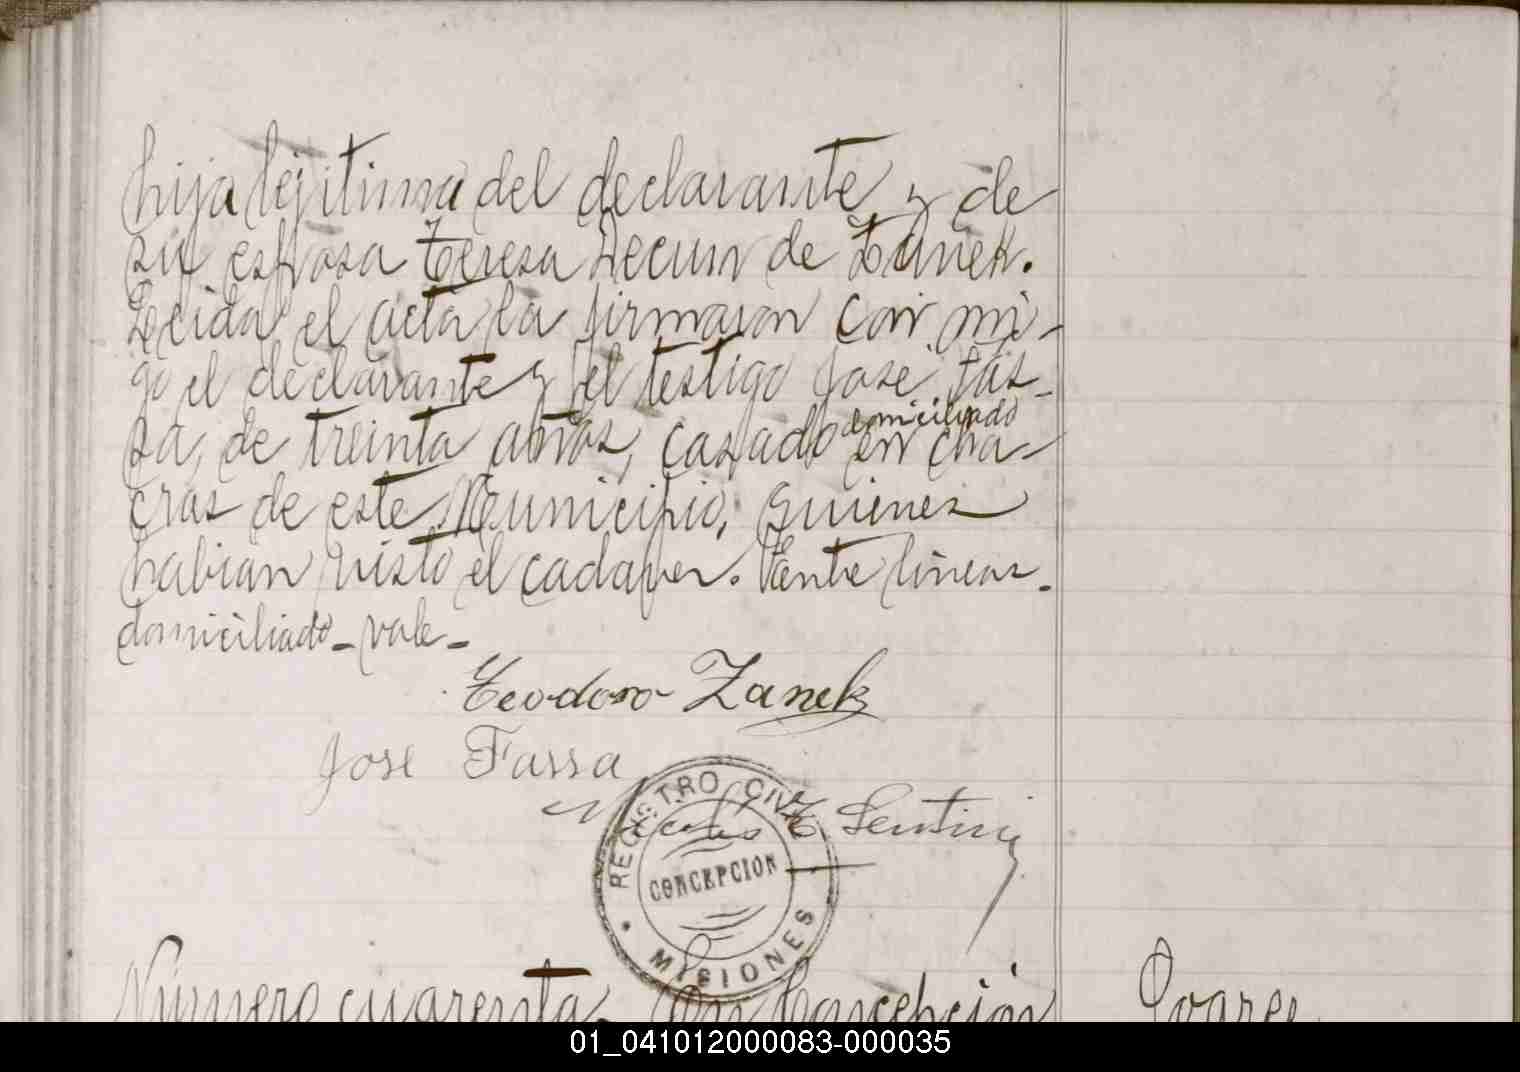 hija legitima del declarante y de
su esposa Teresa Decum de Zanek.
Leida el acta la firmaron con mi-
go el declarante y el testigo José Fas-
sa, de treinta años, casado domiciliado en cha-
cras de este Municipio, quienes
habian visto el cadaver. Entre lineas.
domiciliado - vale -
Teodoro Zanek
José Fassa
Nicolas Z Sentini
REGISTRO CIVIL
CONCEPCION
MISIONES
Número cuarenta. En Concepción
01_041012000083-000035